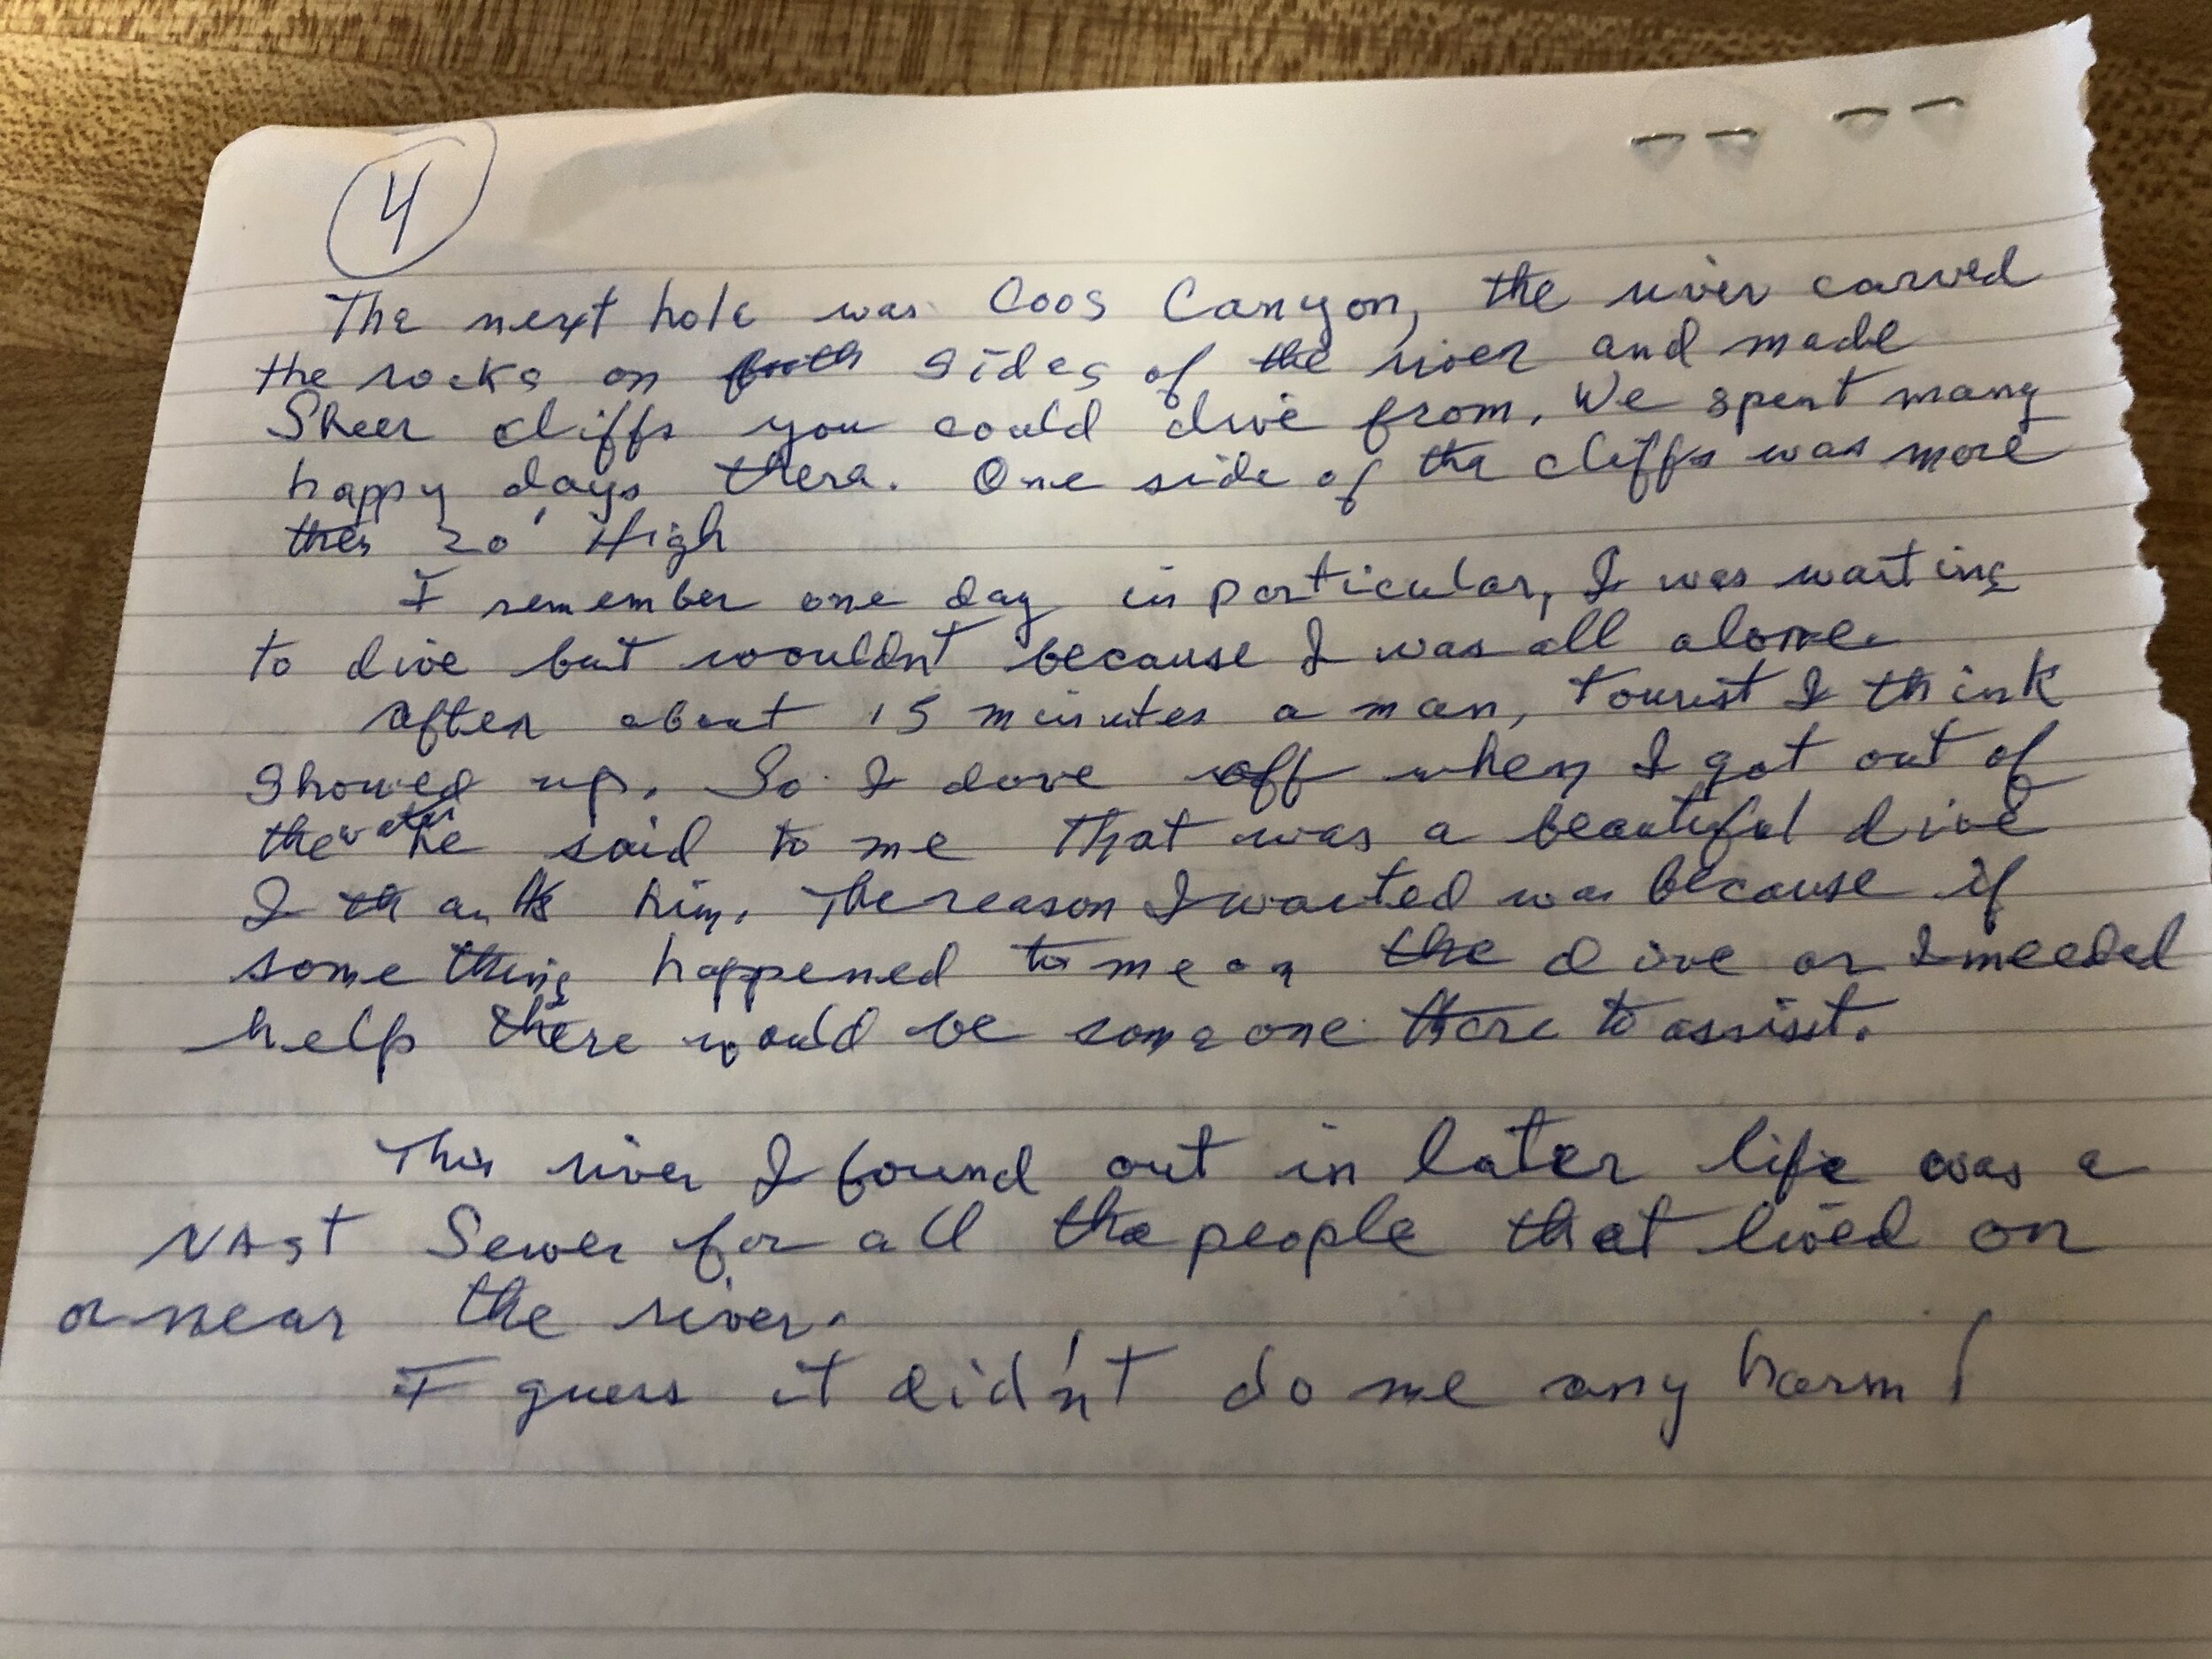 4
The next hole was Coos Canyon, the river carved
the rocks on both sides of the river and made
Sheer cliffs you could dive from. We spent many
happy days there. One side of the cliffs was more
then 20' High
I remember one day in particular, I was waiting
to dive but wouldn't because I was all alone.
after about 15 minutes a man, tourist I think
showed up. So I dove off when I got out of
the water he said to me that was a beautiful dive
I thank him. The reason I waited was because if
something happened to me on the dive or I needed
help there would be someone there to assist.
This river I found out in later life was a
VAst Sewer for all the people that lived on
or near the river.
I guess it didn't do me any harm!